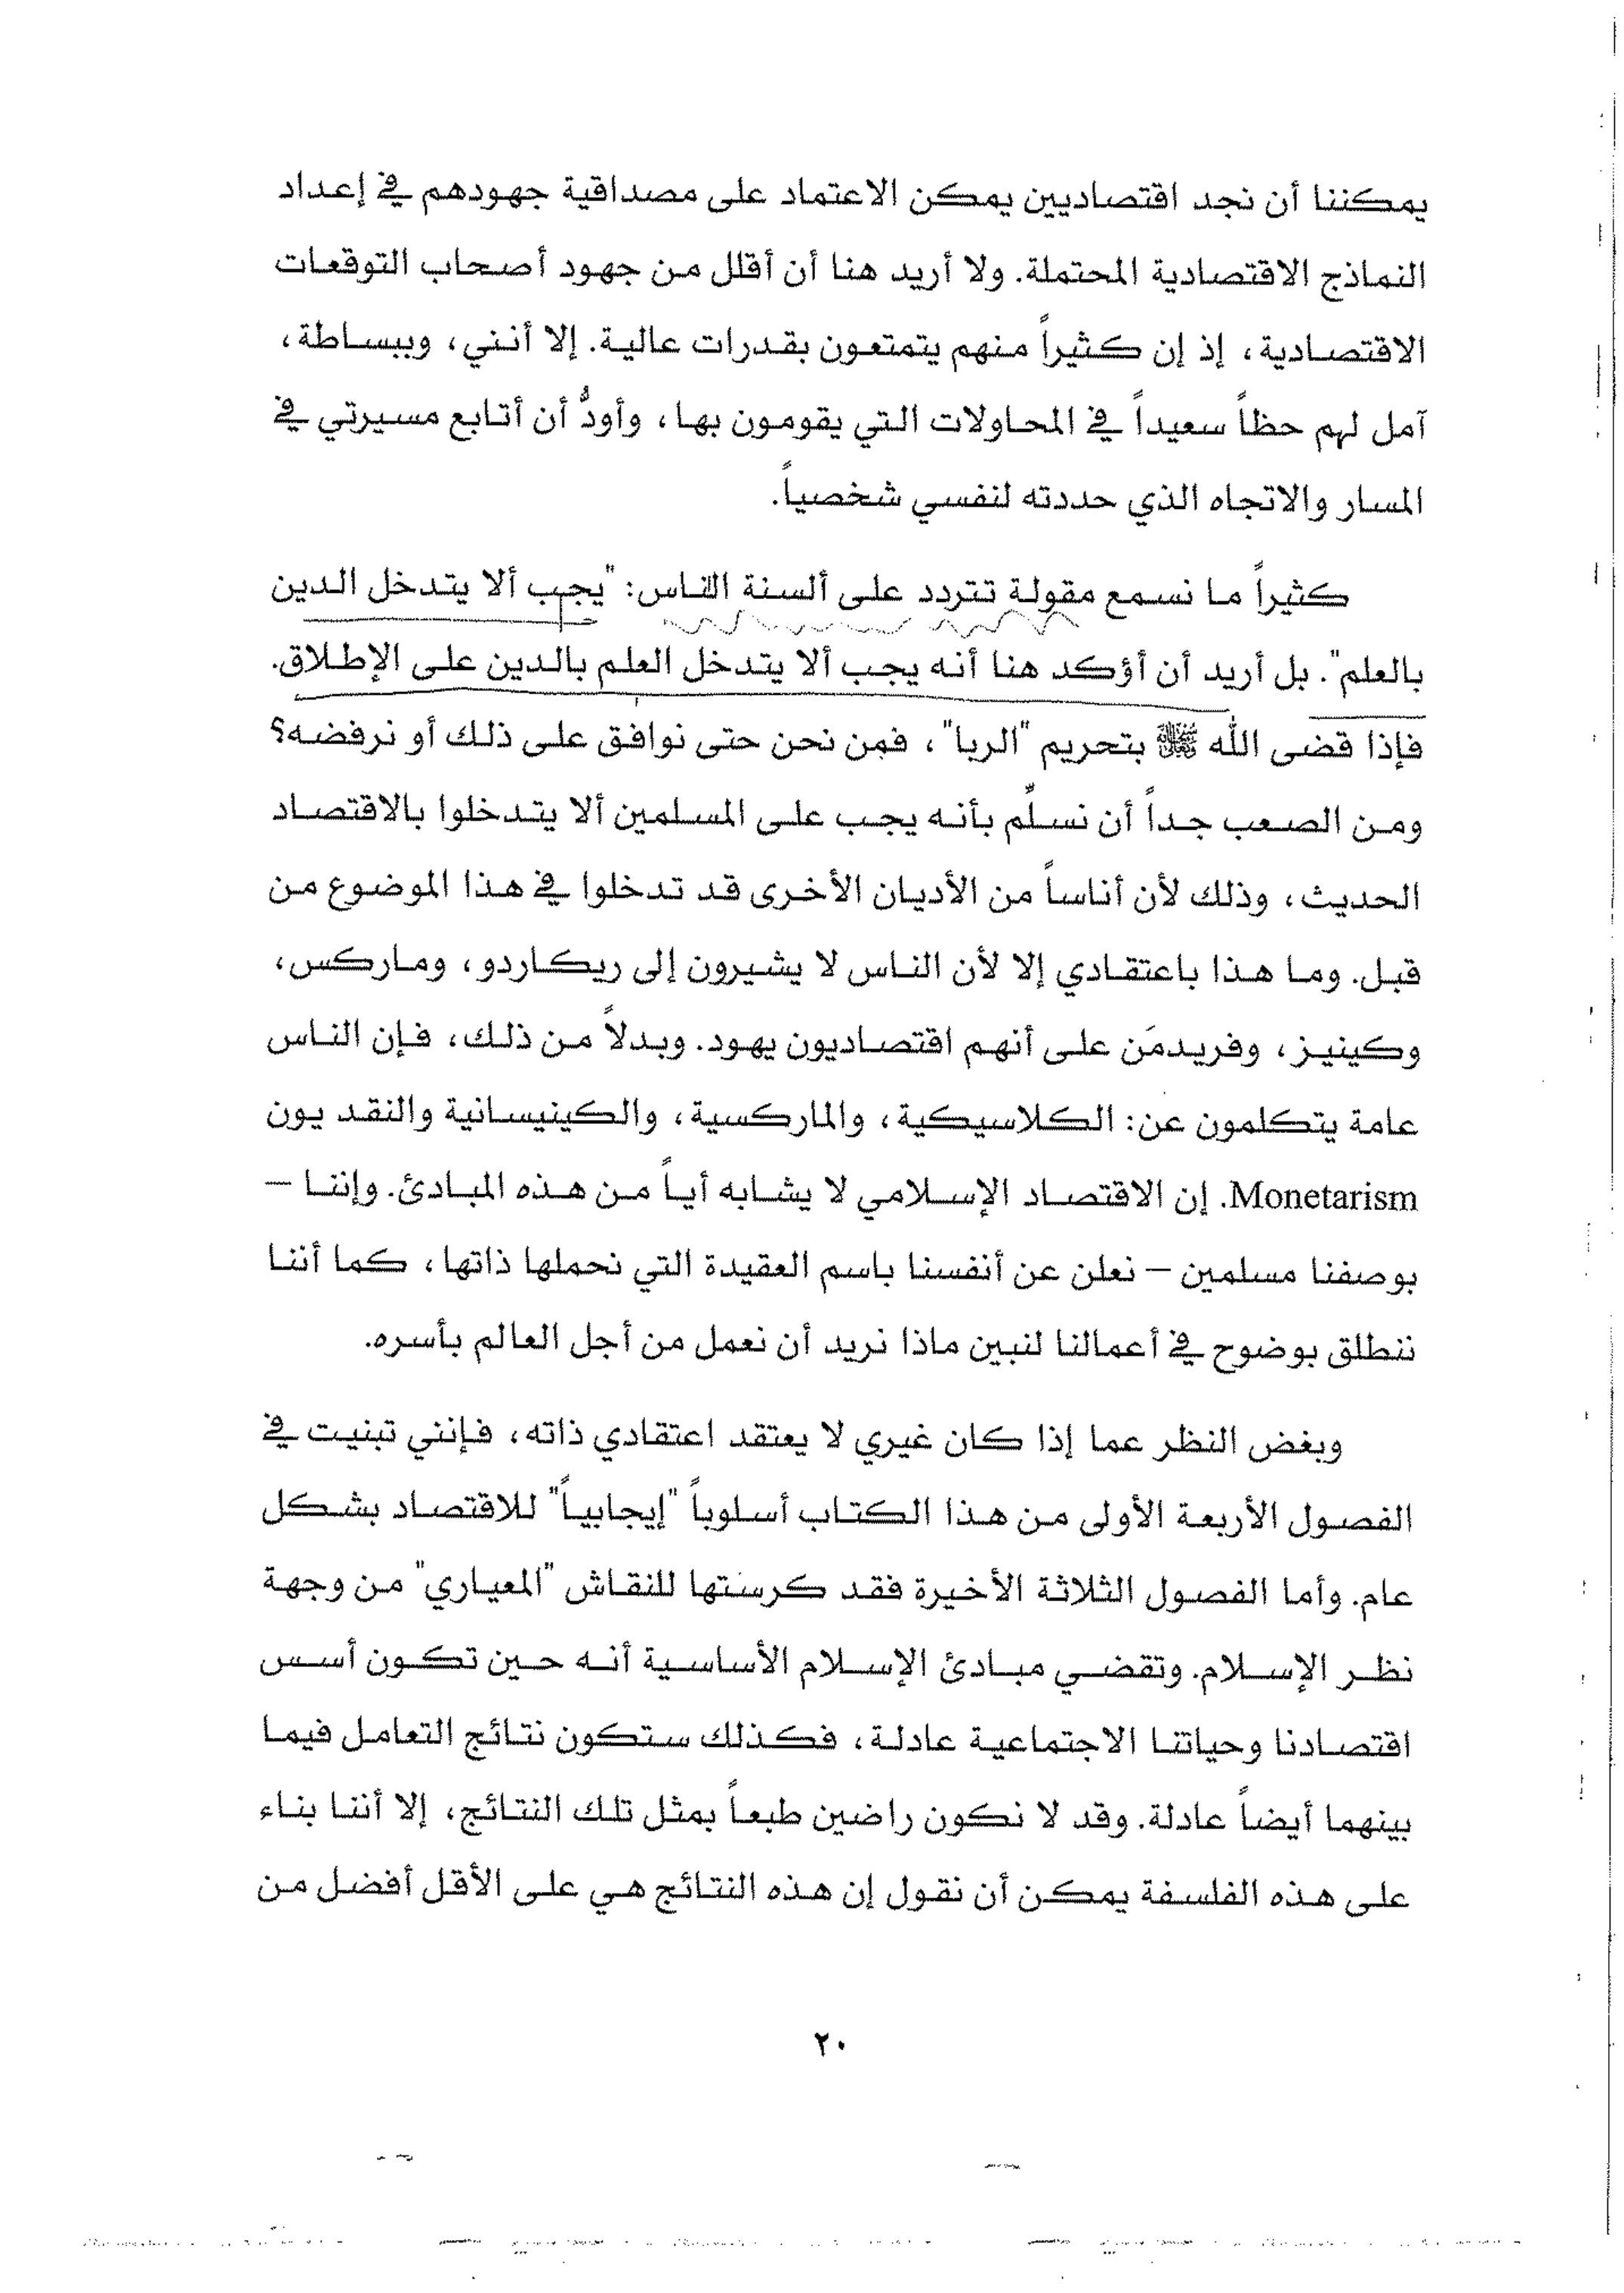 يمكننا أن نجد اقتصاديين يمكن الاعتماد على مصداقية جهودهم في إعداد
النماذج الاقتصادية المحتملة. ولا أريد هنا أن أقلل من جهود أصحاب التوقعات
الاقتصادية، إذ إن كثيراً منهم يتمتعون بقدرات عالية. إلا أنني، وببساطة،
آمل لهم حظاً سعيداً في المحاولات التي يقومون بها، وأودُّ أن أتابع مسيرتي في
المسار والاتجاه الذي حددته لنفسي شخصياً.
كثيراً ما نسمع مقولة تتردد على ألسنة الناس: "يجب ألا يتدخل الدين
بالعلم". بل أريد أن أؤكد هنا أنه يجب ألا يتدخل العلم بالدين على الإطلاق.
فإذا قضى الله ﷺ بتحريم "الربا"، فمن نحن حتى نوافق على ذلك أو نرفضه؟
ومن الصعب جداً أن نسلّم بأنه يجب على المسلمين ألا يتدخلوا بالاقتصاد
الحديث، وذلك لأن أناساً من الأديان الأخرى قد تدخلوا في هذا الموضوع من
قبل. وما هذا باعتقادي إلا لأن الناس لا يشيرون إلى ريكاردو، وماركس،
وكينيز، وفريدمَن على أنهم اقتصاديون يهود. وبدلاً من ذلك، فإن الناس
عامة يتكلمون عن: الكلاسيكية، والماركسية، والكينيسانية والنقد يون
Monetarism. إن الاقتصاد الإسلامي لا يشابه أياً من هذه المبادئ. وإننا –
بوصفنا مسلمين – نعلن عن أنفسنا باسم العقيدة التي نحملها ذاتها، كما أننا
ننطلق بوضوح في أعمالنا لنبين ماذا نريد أن نعمل من أجل العالم بأسره.
وبغض النظر عما إذا كان غيري لا يعتقد اعتقادي ذاته، فإنني تبنيت في
الفصول الأربعة الأولى من هذا الكتاب أسلوباً "إيجابياً" للاقتصاد بشكل
عام. وأما الفصول الثلاثة الأخيرة فقد كرستها للنقاش "المعياري" من وجهة
نظر الإسلام. وتقضي مبادئ الإسلام الأساسية أنه حين تكون أسس
اقتصادنا وحياتنا الاجتماعية عادلة، فكذلك ستكون نتائج التعامل فيما
بينهما أيضاً عادلة. وقد لا نكون راضين طبعاً بمثل تلك النتائج، إلا أننا بناء
على هذه الفلسفة يمكن أن نقول إن هذه النتائج هي على الأقل أفضل من
٢٠